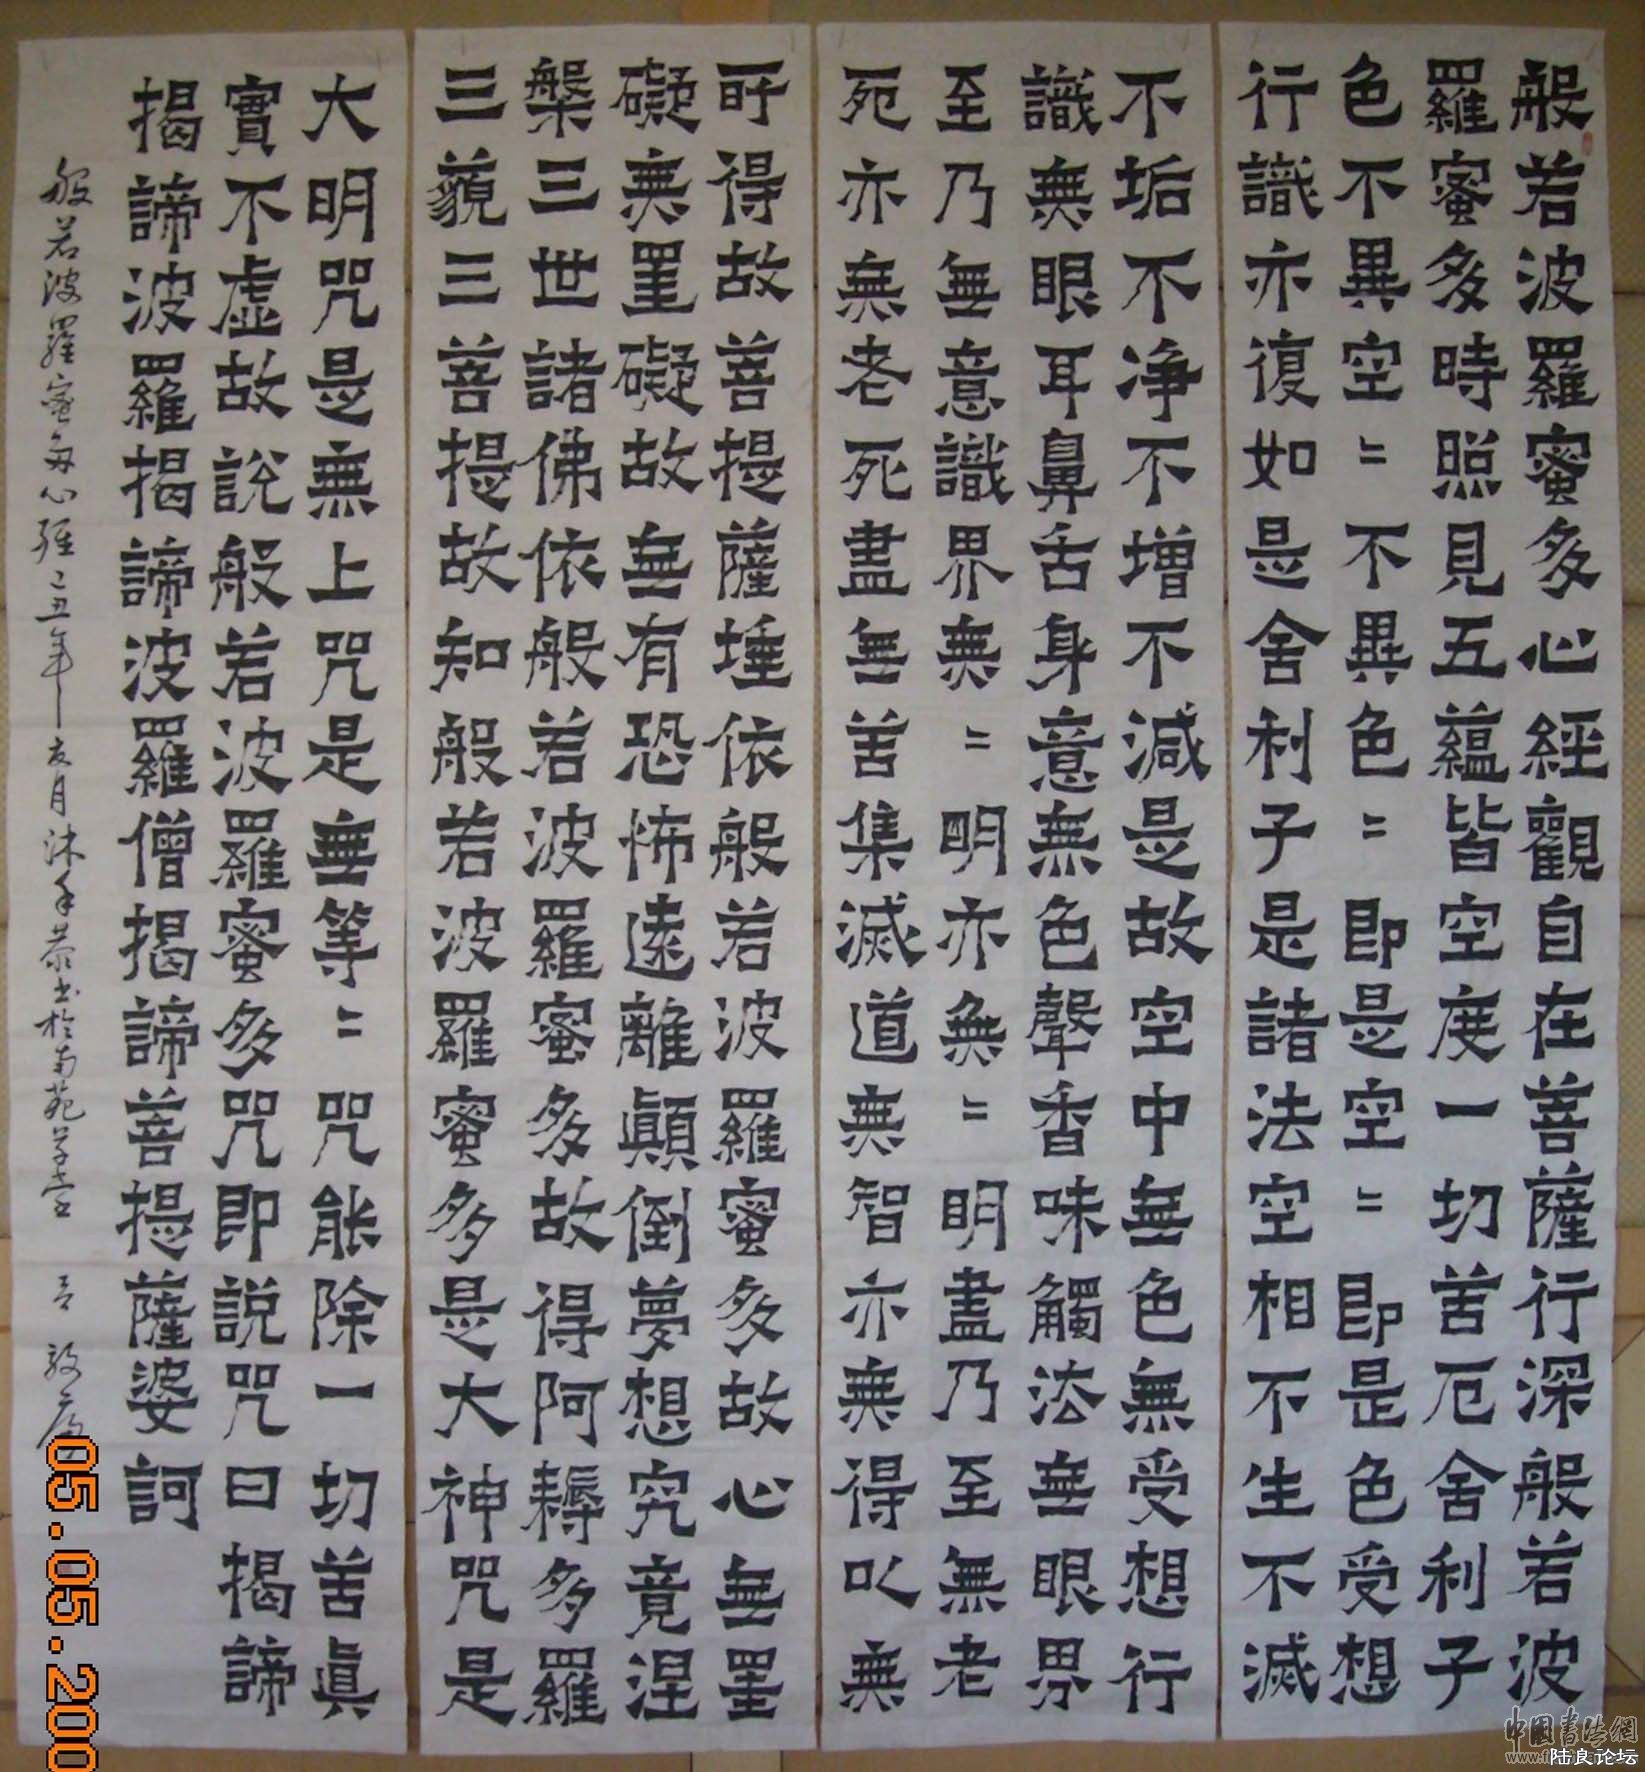 般若波羅蜜多心經觀自在菩薩行深般若波
羅蜜多時照見五蘊皆空度一切苦厄舍利子
色不異空〻不異色〻即是空〻即是色受想
行識亦復如是舍利子是諸法空相不生不滅
不垢不净不增不減是故空中無色無受想行
識無眼耳鼻舌身意無色聲香味觸法無眼界
至乃無意識界無〻明亦無〻明盡乃至無老
死亦無老死盡無苦集滅道無智亦無得以無
所得故菩提薩埵依般若波羅蜜多故心無罣
礙無罣礙故無有恐怖遠離顛倒夢想究竟涅
槃三世諸佛依般若波羅蜜多故得阿耨多羅
三藐三菩提故知般若波羅蜜多是大神咒是
大明咒是無上咒是無等〻咒能除一切苦真
實不虛故說般若波羅蜜多咒即說咒曰揭諦
揭諦波羅揭諦波羅僧揭諦菩提薩婆訶
般若波羅蜜多心經己丑年夏月沐手恭书於南苑学堂
05.05.200
中国書法網
陆良论坛